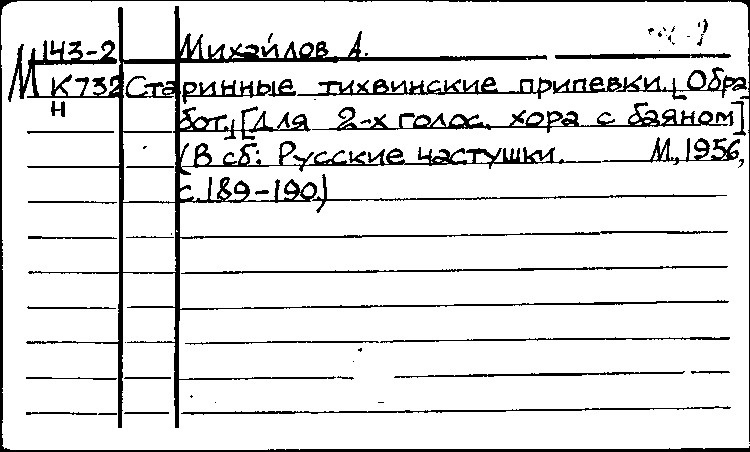 143-2 Михайлов, А.
М К732 Старинные тихвинские припевки. [Обра
Н бот.] [Для 2-х голос. хора с баяном]
(В сб: Русские частушки. М., 1956,
с. 189-190.)